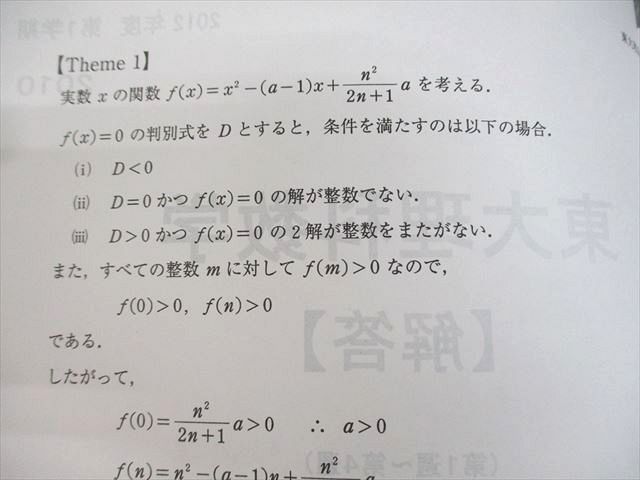 【Theme 1】
実数 x の関数 f(x)=x²−(a−1)x+\frac{n²}{2n+1}a を考える.
f(x)=0 の判別式を D とすると, 条件を満たすのは以下の場合.
(i) D<0
(ii) D=0 かつ f(x)=0 の解が整数でない.
(iii) D>0 かつ f(x)=0 の 2 解が整数をまたがない.
また, すべての整数 m に対して f(m)>0 なので,
f(0)>0, f(n)>0
である.
したがって,
f(0)=\frac{n²}{2n+1}a>0 ∴ a>0
f(n)=n²−(a−1)n+\frac{n²}{}a
2012年度 第1学期
2010
東大理科数学
【解答】
(第1週～第4週)